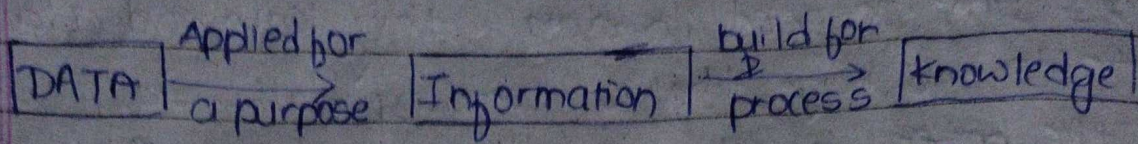 DATA
Applied for
a purpose
Information
build for
process
knowledge